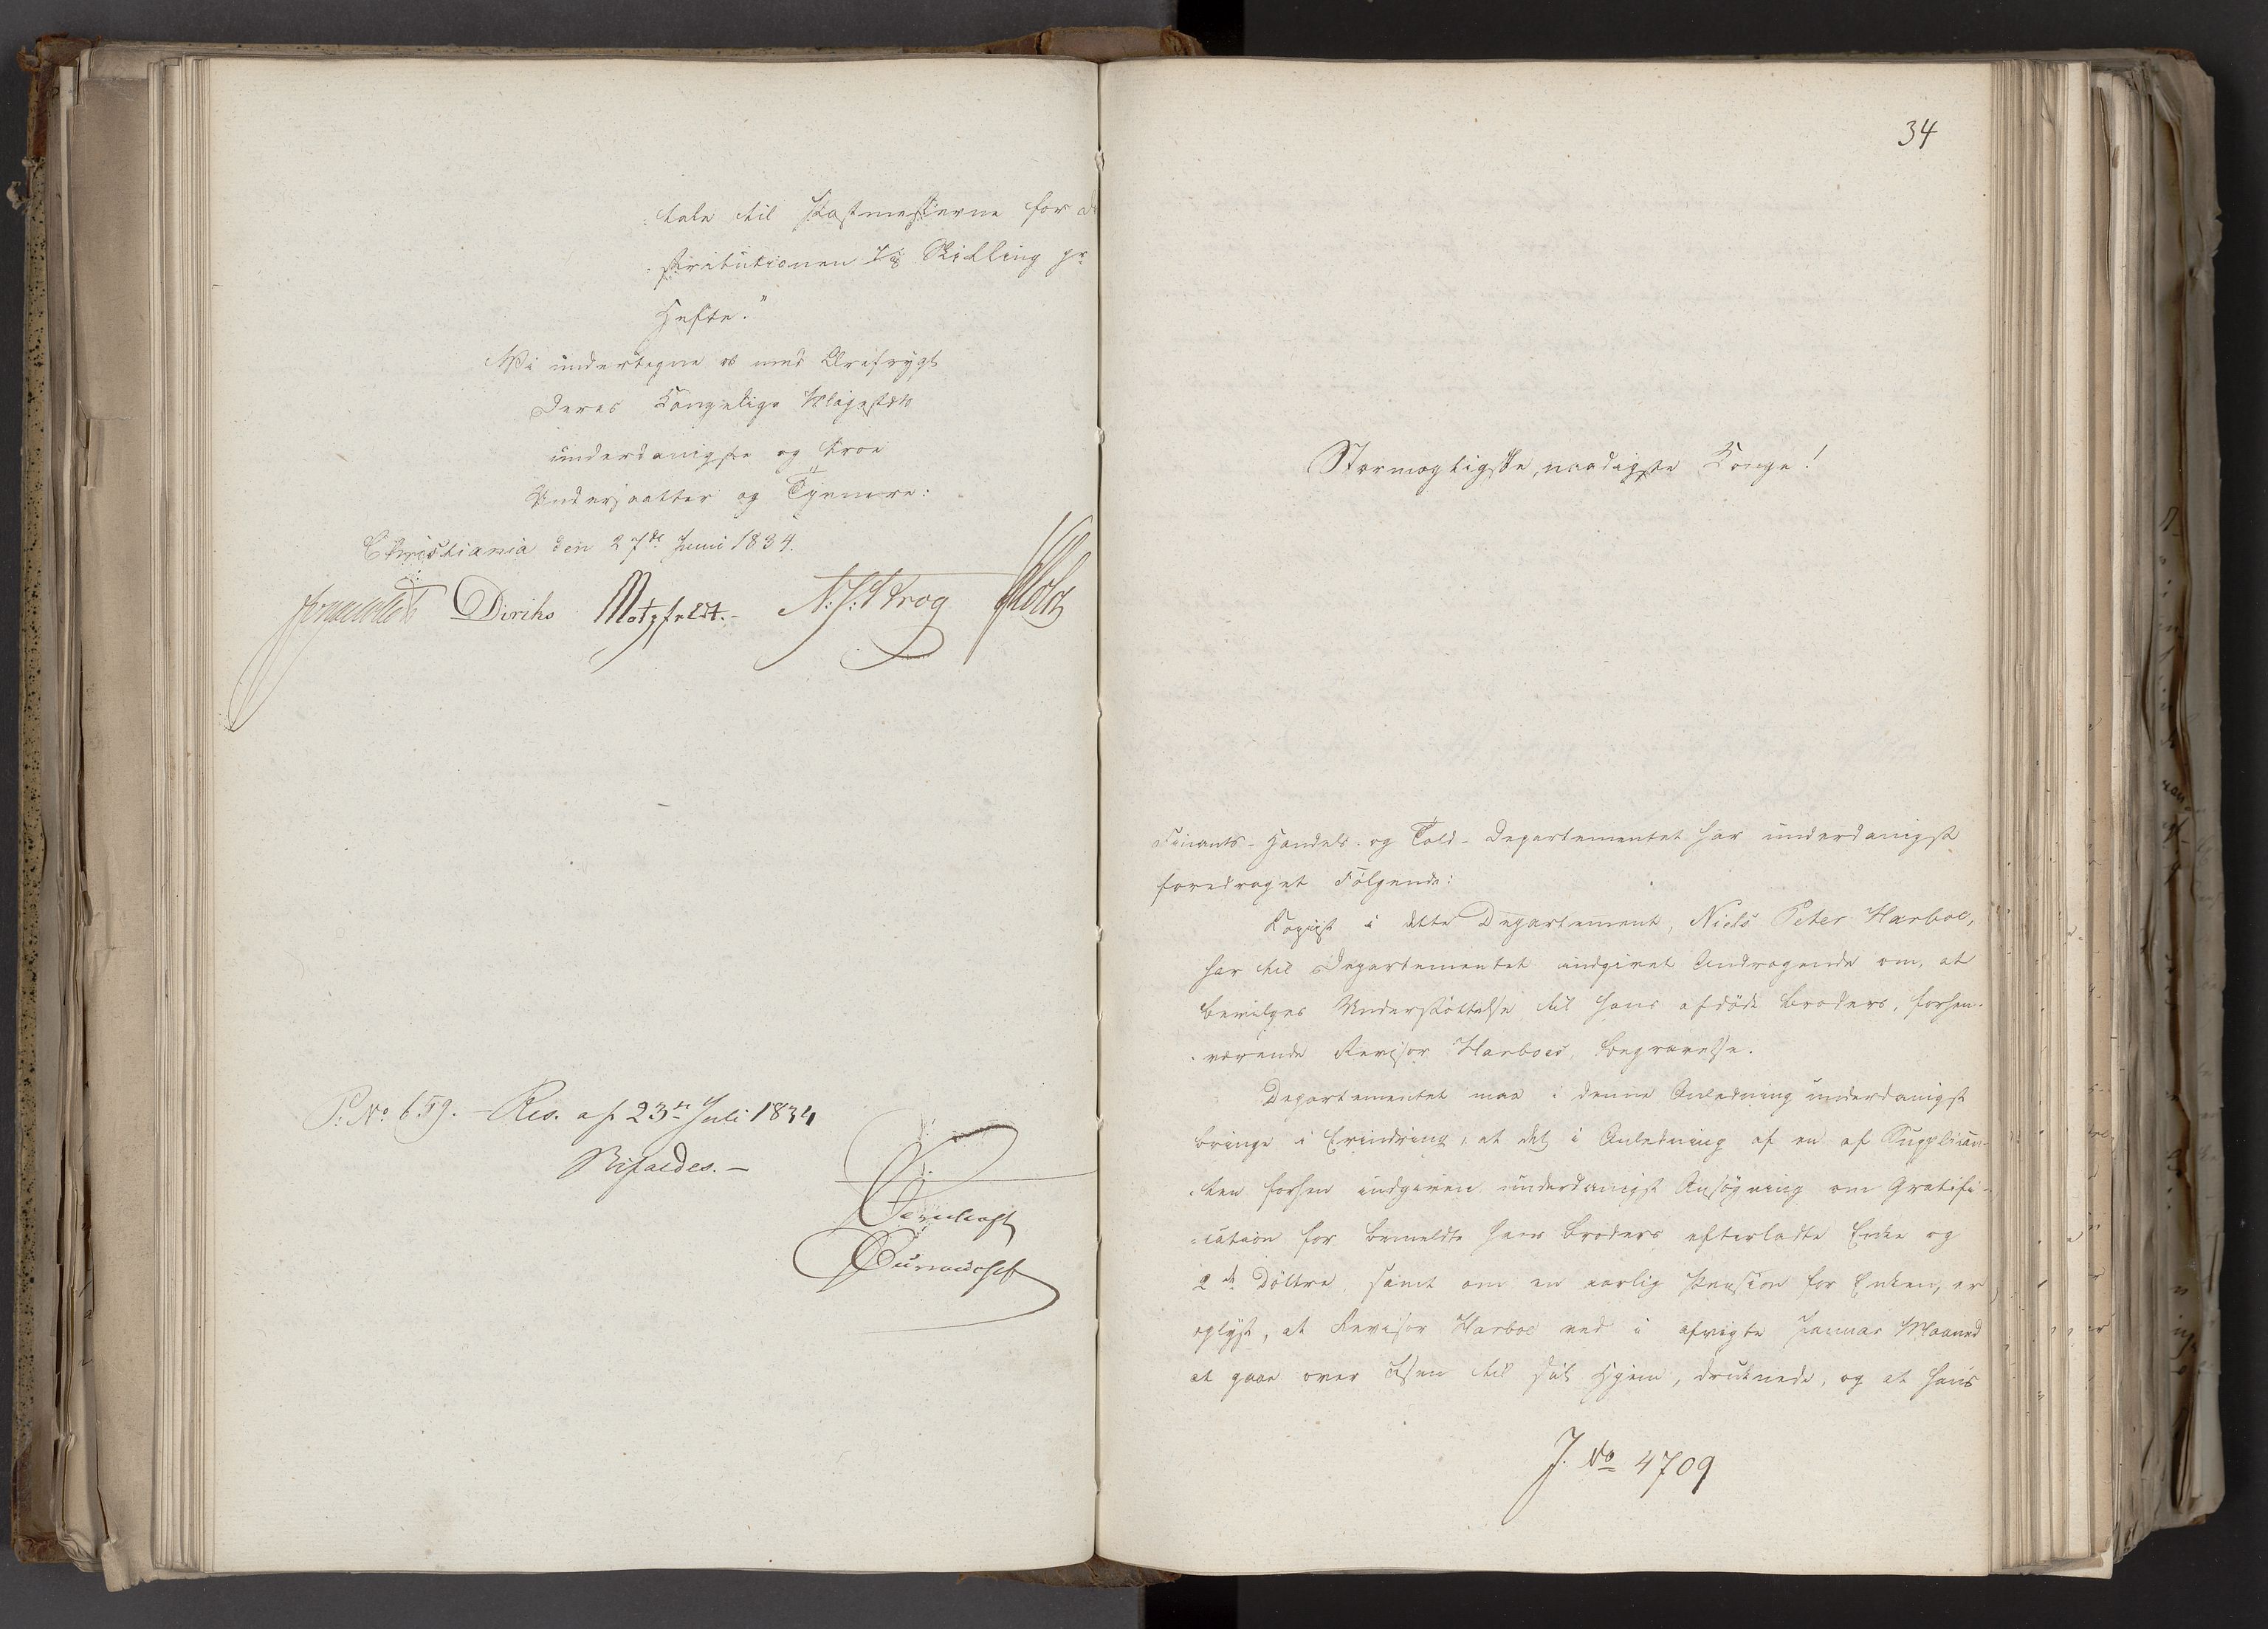 :tale til Postmesterne for Di
:stributionen 1/8 Skilling pr
Hefte."
Vi undertegne os med Ærefrygt
Deres Kongelige Majestæts
underdanigste og troe
Undersaatter og Tjenere:
Christiania den 27de Juni 1834.
Diriks Motzfeldt.- N:J: Krog Holst
P: No 659. - Res. af 23de Juli 1834
Bifaldes. -
34
Stormægtigste, naadigste Konge!
Finants- Handels- og Told-Departementet har underdanigst
foredraget Følgende:
Kopiist i dette Departement, Niels Peter Harboe,
har til Departementet indgivet Andragende om, at
bevilges Understøttelse til hans afdøde Broders, forhen-
-værende Revisor Harboes, Begravelse.
Departementet maa i denne Anledning underdanigst
bringe i Erindring, at det i Anledning af en af Supplican-
-ten forhen indgiven underdanigst Ansøgning om Gratifi-
-cation for bemeldte hans Broders efterladte Enke og
2de Døttre, samt om en aarlig Pension for Enken, er
oplyst, at Revisor Harboe ved i afvigte Januar Maaned
at gaae over Isen til sit Hjem, druknede, og at hans
J. No 4709